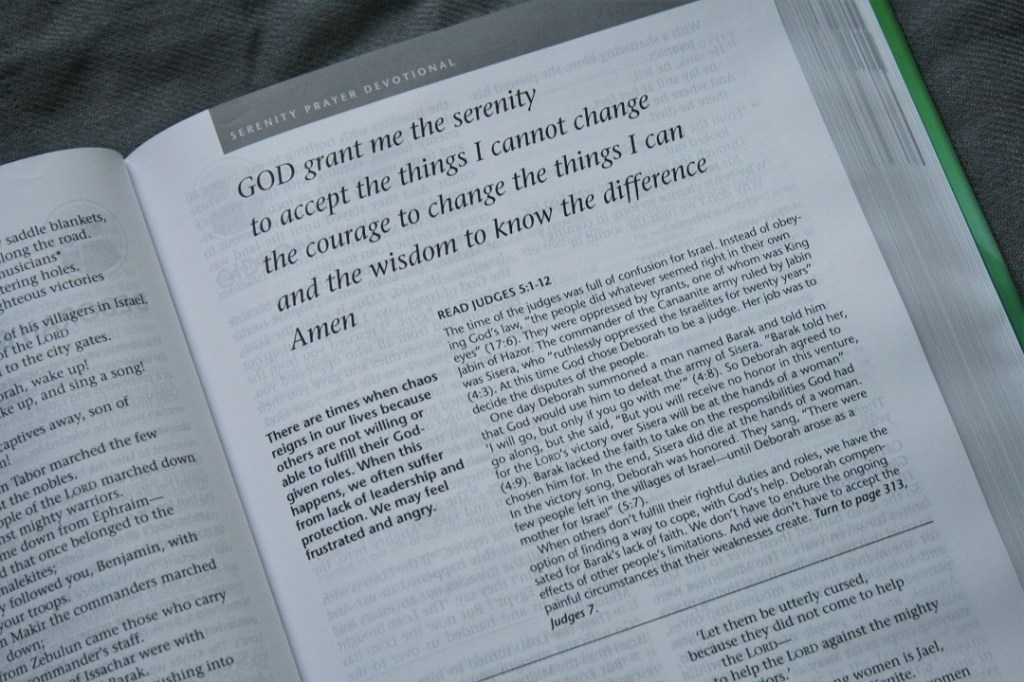 saddle blankets,
long the road.
musicians*
tering holes.
ghteous victories
of his villagers in Israel,
of the LORD
to the city gates.
orah, wake up!
ke up, and sing a song!
captives away, son of
Tabor marched the few
the nobles.
ople of the LORD marched down
nst mighty warriors.
me down from Ephraim—
d that once belonged to the
malekites;
y followed you, Benjamin, with
your troops.
Makir the commanders marched
down;
om Zebulun came those who carry
ommander's staff.
of Issachar were with
Barak.
ushing into
SERENITY PRAYER DEVOTIONAL
GOD grant me the serenity
to accept the things I cannot change
the courage to change the things I can
and the wisdom to know the difference
Amen
There are times when chaos
reigns in our lives because
others are not willing or
able to fulfill their God-
given roles. When this
happens, we often suffer
from lack of leadership and
protection. We may feel
frustrated and angry.
READ JUDGES 5:1-12
The time of the judges was full of confusion for Israel. Instead of obey-
ing God's law, "the people did whatever seemed right in their own
eyes" (17:6). They were oppressed by tyrants, one of whom was King
Jabin of Hazor. The commander of the Canaanite army ruled by Jabin
was Sisera, who "ruthlessly oppressed the Israelites for twenty years"
(4:3). At this time God chose Deborah to be a judge. Her job was to
decide the disputes of the people.
One day Deborah summoned a man named Barak and told him
that God would use him to defeat the army of Sisera. "Barak told her,
'I will go, but only if you go with me'" (4:8). So Deborah agreed to
go along, but she said, "But you will receive no honor in this venture,
for the LORD's victory over Sisera will be at the hands of a woman"
(4:9). Barak lacked the faith to take on the responsibilities God had
chosen him for. In the end, Sisera did die at the hands of a woman.
In the victory song, Deborah was honored. They sang, "There were
few people left in the villages of Israel—until Deborah arose as a
mother for Israel" (5:7).
When others don't fulfill their rightful duties and roles, we have the
option of finding a way to cope, with God's help. Deborah compen-
sated for Barak's lack of faith. We don't have to endure the ongoing
effects of other people's limitations. And we don't have to accept the
painful circumstances that their weaknesses create. Turn to page 313,
Judges 7.
'Let them be utterly cursed,
because they did not come to help
the LORD—
to help the LORD against the mighty
women is Jael,
women